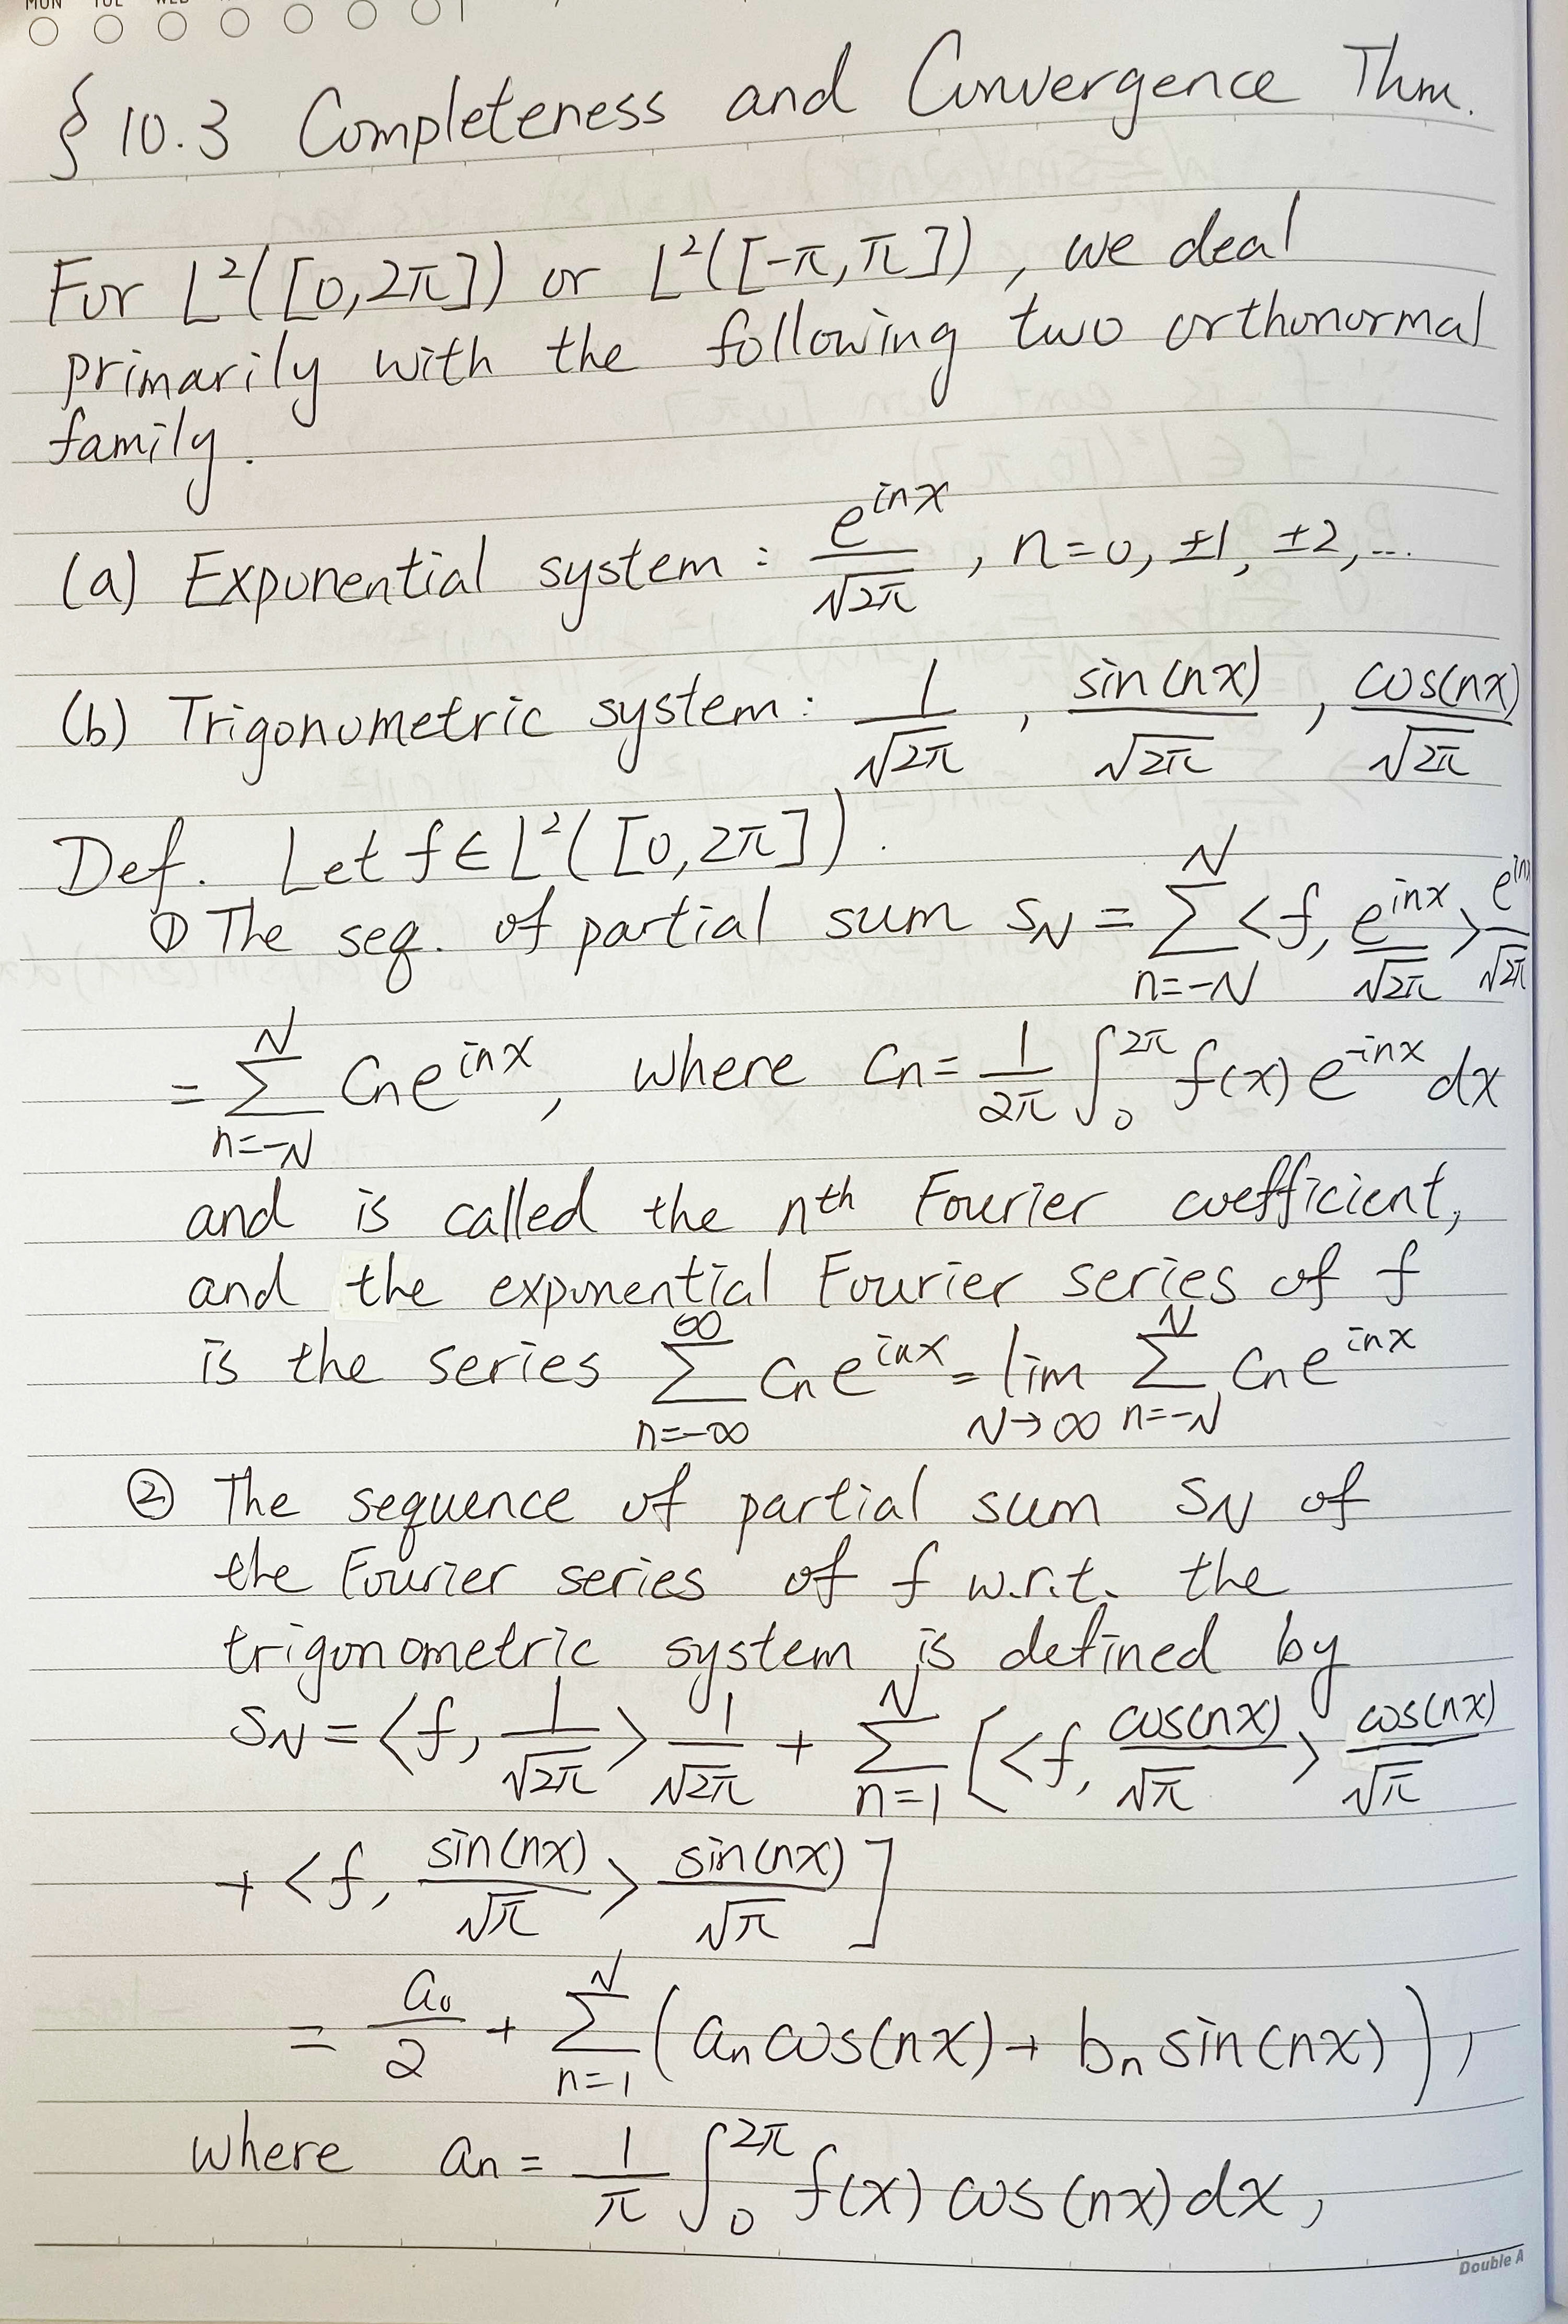 MON TUE WED
§ 10.3 Completeness and Convergence Thm.
For L²([0,2π]) or L²([-π,π]), we deal
primarily with the following two orthonormal
family.
(a) Exponential system : e^{inx}/√2π , n=0, ±1, ±2,...
(b) Trigonometric system: 1/√2π , sin(nx)/√2π , cos(nx)/√2π
Def. Let f∈L²([0,2π]).
① The seq. of partial sum S_N = ∑_{n=-N}^{N} <f, e^{inx}/√2π> e^{inx}/√2π
= ∑_{n=-N}^{N} C_n e^{inx}, where C_n = 1/2π ∫_0^{2π} f(x) e^{-inx} dx
and is called the nth Fourier coefficient,
and the exponential Fourier series of f
is the series ∑_{n=-∞}^{∞} C_n e^{inx} = lim_{N→∞} ∑_{n=-N}^{N} C_n e^{inx}
② The sequence of partial sum S_N of
the Fourier series of f w.r.t. the
trigonometric system is defined by
S_N = <f, 1/√2π> 1/√2π + ∑_{n=1}^{N} [<f, cos(nx)/√π> cos(nx)/√π
+ <f, sin(nx)/√π> sin(nx)/√π ]
= a_0/2 + ∑_{n=1}^{N} (a_n cos(nx) + b_n sin(nx)),
where a_n = 1/π ∫_0^{2π} f(x) cos(nx) dx,
Double A